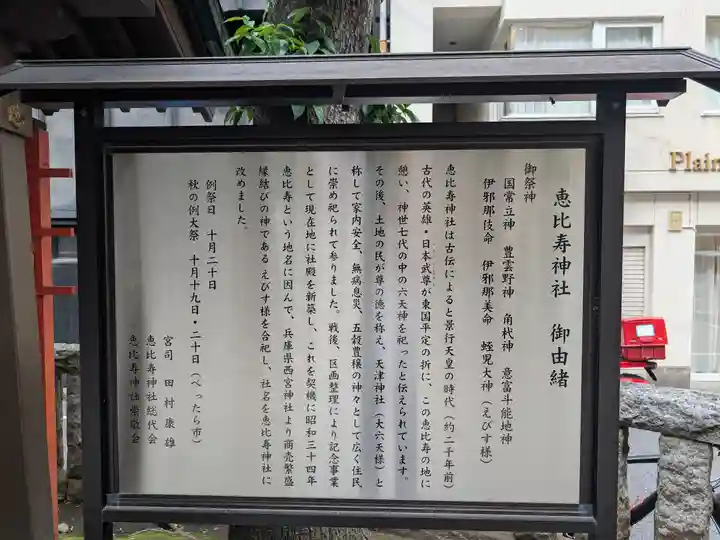 恵比寿神社　御由緒
御祭神
国常立神　豊雲野神　角杙神　意富斗能地神
伊邪那伎命　伊邪那美命　蛭児大神（えびす様）
恵比寿神社は古伝によると景行天皇の時代（約二千年前）
古代の英雄・日本武尊が東国平定の折に、この恵比寿の地に
憩い、神世七代の中の六天神を祀ったと伝えられています。
その後、土地の民が尊の徳を称え、天津神社（大六天様）と
称して家内安全、無病息災、五穀豊穣の神々として広く住民
に崇め祀られて参りました。戦後、区画整理により記念事業
として現在地に社殿を新築し、これを契機に昭和三十四年
恵比寿という地名に因んで、兵庫県西宮神社より商売繁盛
縁結びの神である えびす様を合祀し、社名を恵比寿神社に
改めました。
例祭日　十月二十日
秋の例大祭　十月十九日・二十日（べったら市）
宮司　田村康雄
恵比寿神社総代会
恵比寿神社崇敬会
Plain